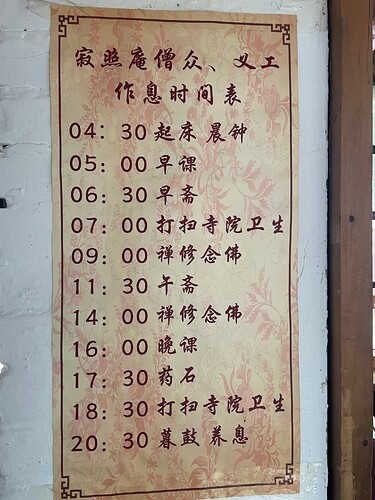 寂照庵僧众、义工
作息时间表
04：30 起床 晨钟
05：00 早课
06：30 早斋
07：00 打扫寺院卫生
09：00 禅修念佛
11：30 午斋
14：00 禅修念佛
16：00 晚课
17：30 药石
18：30 打扫寺院卫生
20：30 暮鼓 养息